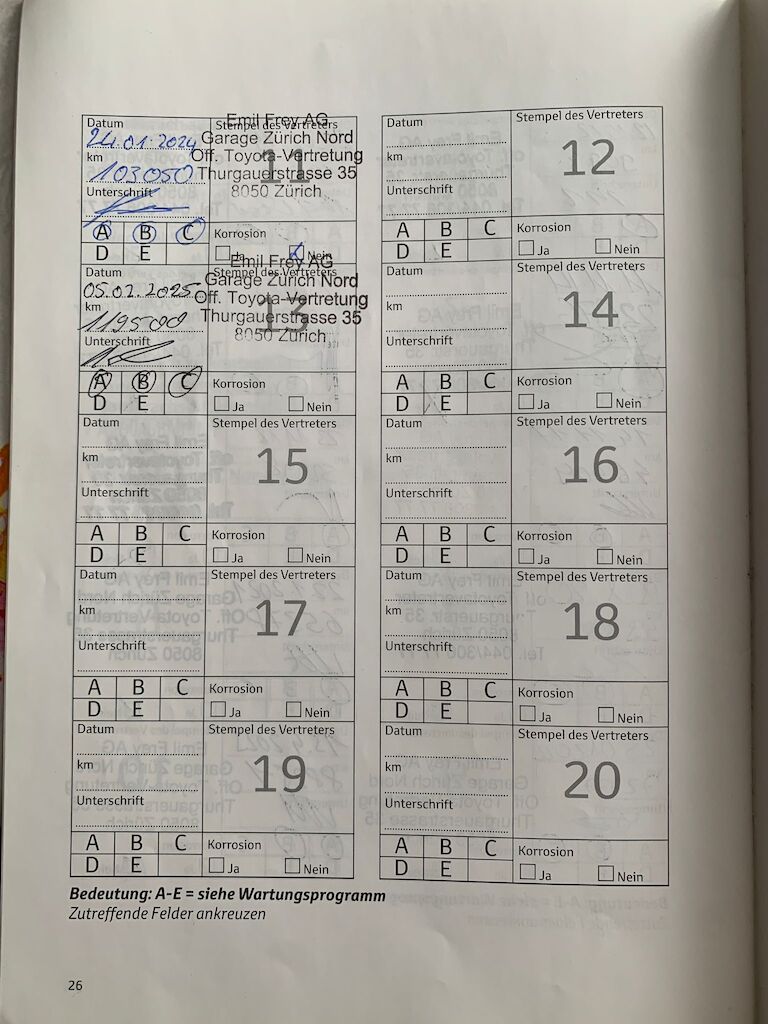 Datum
24.01.2024
km
103050
Unterschrift
Stempel des Vertreters
11
Emil Frey AG
Garage Zürich Nord
Off. Toyota-Vertretung
Thurgauerstrasse 35
8050 Zürich
A B C
D E
Korrosion
Ja Nein
Datum
km
Unterschrift
Stempel des Vertreters
12
A B C
D E
Korrosion
Ja Nein
Datum
05.02.2025
km
119500
Unterschrift
Stempel des Vertreters
13
Emil Frey AG
Garage Zürich Nord
Off. Toyota-Vertretung
Thurgauerstrasse 35
8050 Zürich
A B C
D E
Korrosion
Ja Nein
Datum
km
Unterschrift
Stempel des Vertreters
14
A B C
D E
Korrosion
Ja Nein
Datum
km
Unterschrift
Stempel des Vertreters
15
A B C
D E
Korrosion
Ja Nein
Datum
km
Unterschrift
Stempel des Vertreters
16
A B C
D E
Korrosion
Ja Nein
Datum
km
Unterschrift
Stempel des Vertreters
17
A B C
D E
Korrosion
Ja Nein
Datum
km
Unterschrift
Stempel des Vertreters
18
A B C
D E
Korrosion
Ja Nein
Datum
km
Unterschrift
Stempel des Vertreters
19
A B C
D E
Korrosion
Ja Nein
Datum
km
Unterschrift
Stempel des Vertreters
20
A B C
D E
Korrosion
Ja Nein
Bedeutung: A-E = siehe Wartungsprogramm
Zutreffende Felder ankreuzen
26